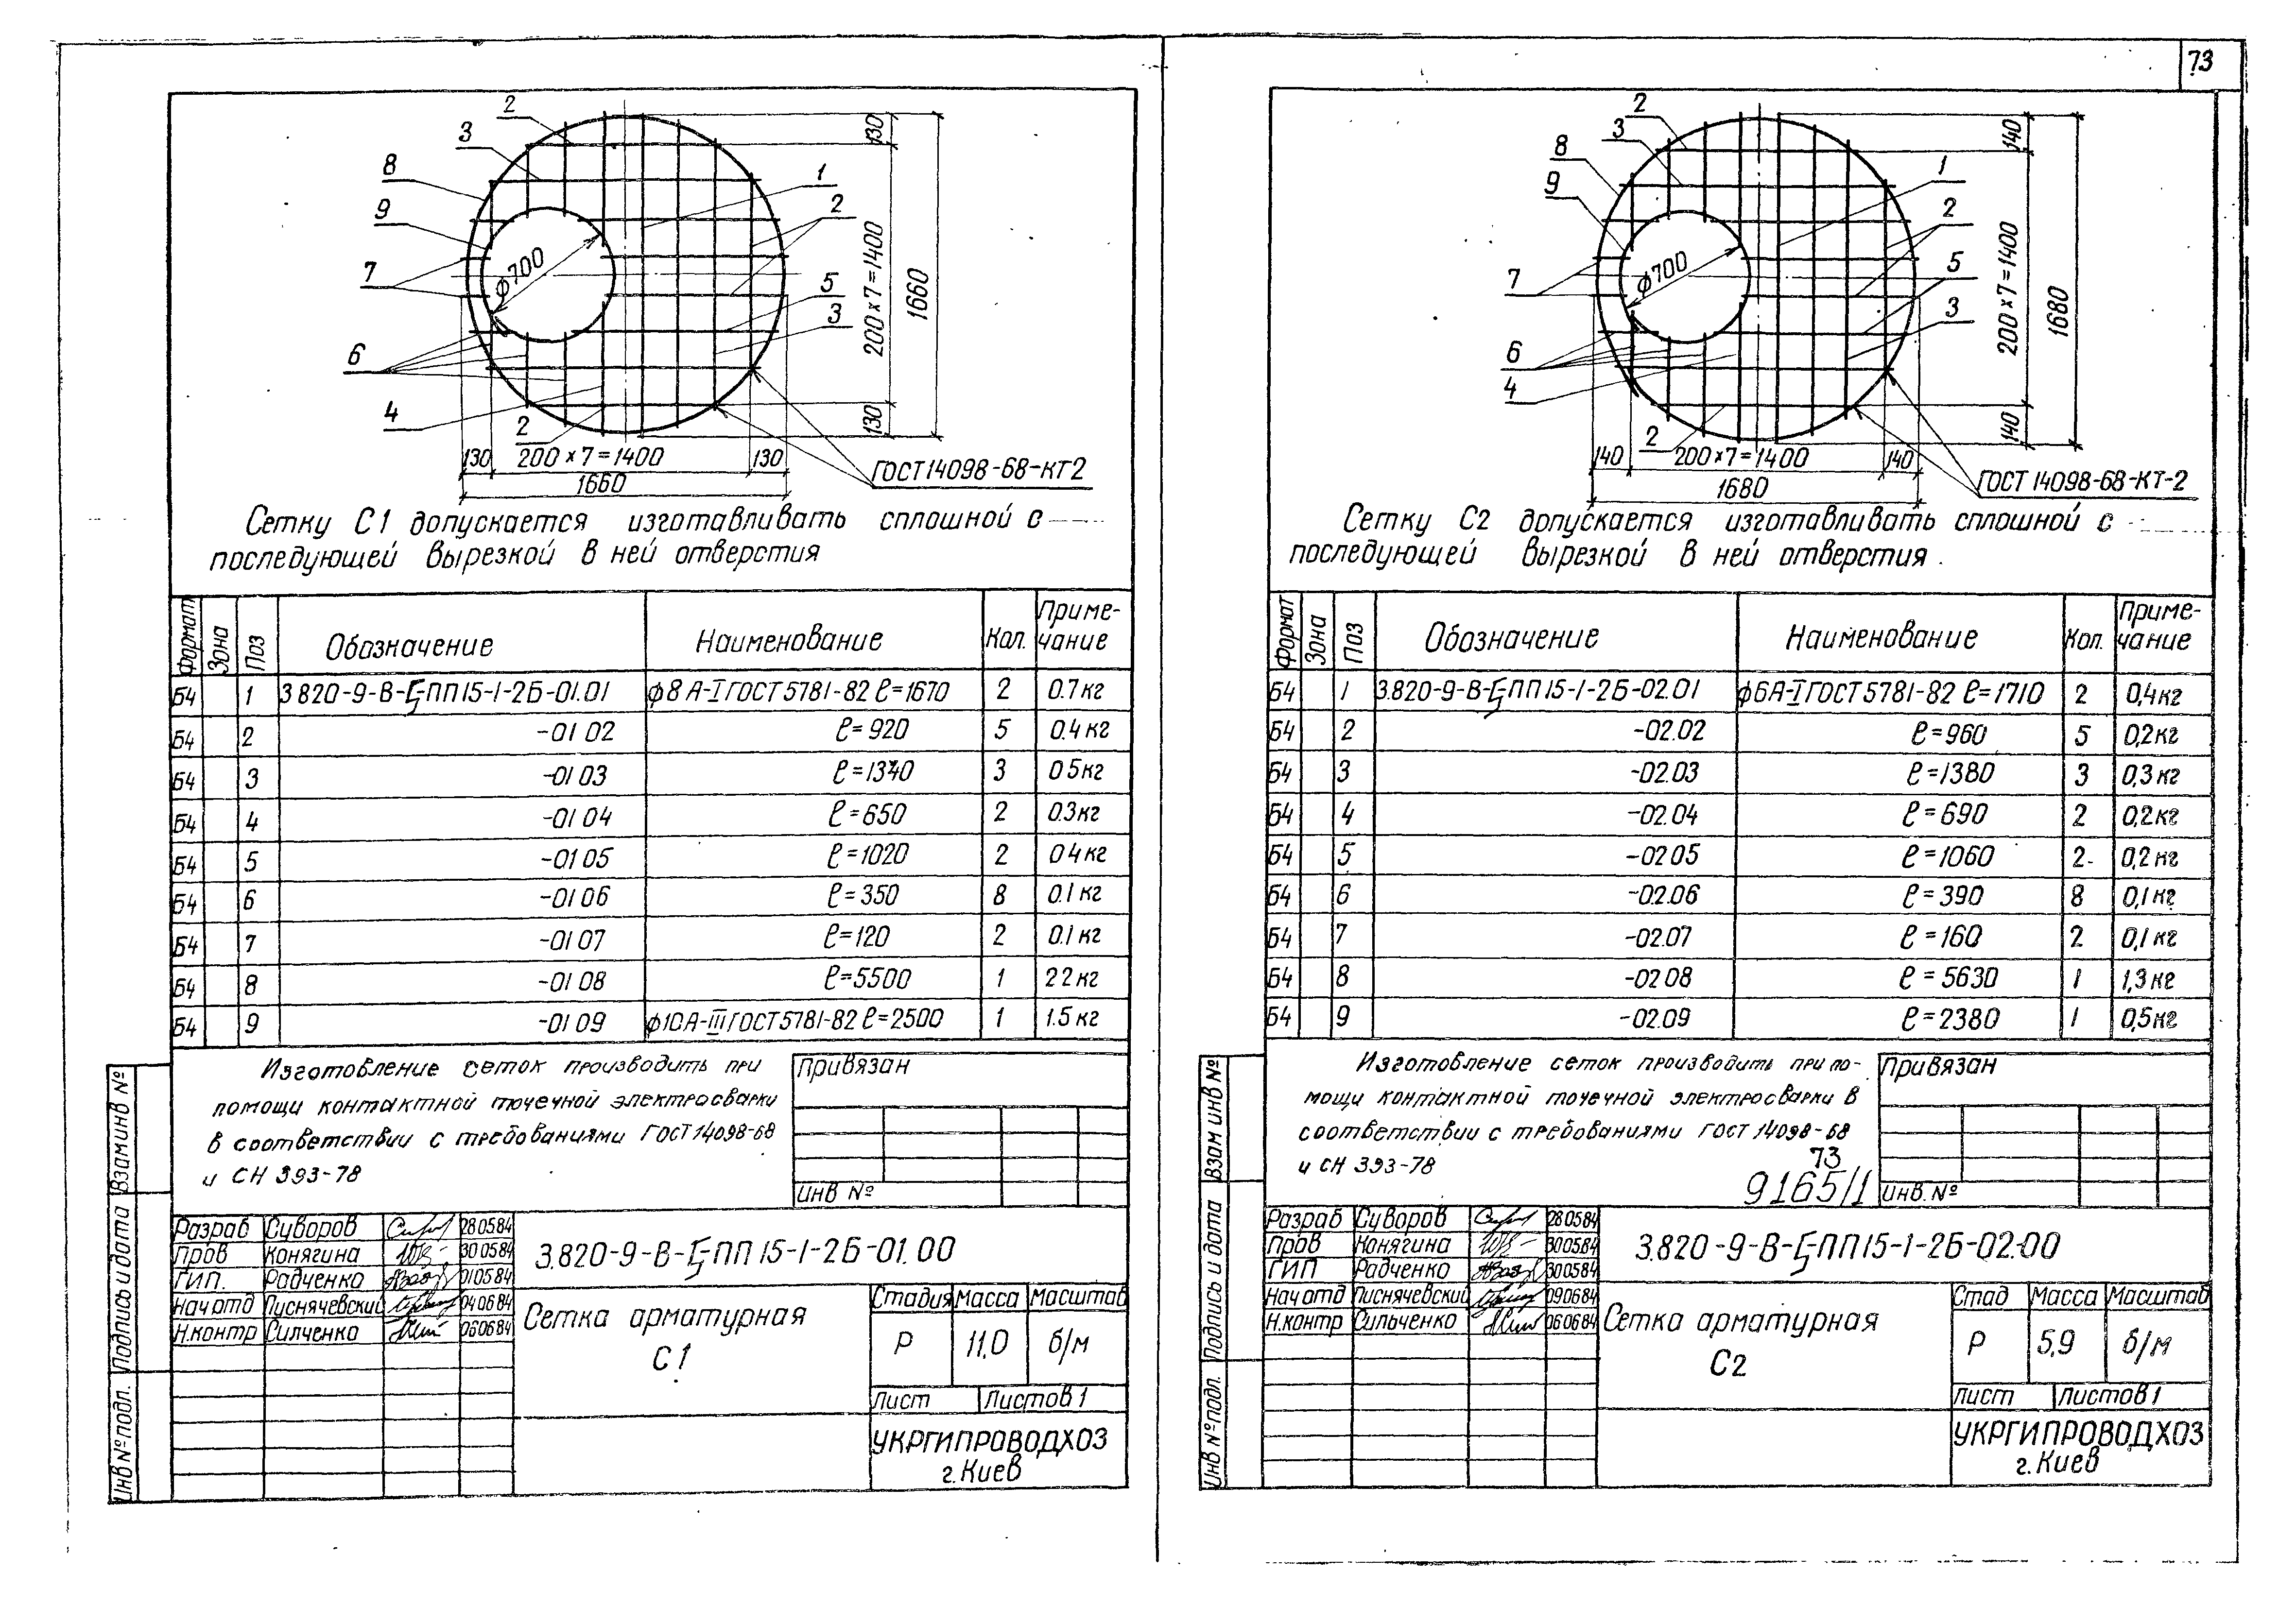 73
2
3
8
9
7
6
4
2
1
2
5
3
ф700
130
200×7=1400
130
1660
130
200×7=1400
130
1660
ГОСТ14098-68-КТ2
Сетку С1 допускается изготавливать сплошной с
последующей вырезкой в ней отверстия
Формат Зона Поз Обозначение Наименование Кол. Примечание
Б4 1 3.820-9-В- ПП15-1-2Б-01.01 ф8А-I ГОСТ5781-82 ℓ=1670 2 0.7кг
Б4 2 -01 02 ℓ=920 5 0.4кг
Б4 3 -01 03 ℓ=1340 3 05кг
Б4 4 -01 04 ℓ=650 2 0.3кг
Б4 5 -01 05 ℓ=1020 2 04кг
Б4 6 -01 06 ℓ=350 8 0.1кг
Б4 7 -01 07 ℓ=120 2 0.1кг
Б4 8 -01 08 ℓ=5500 1 22кг
Б4 9 -01 09 ф10А-III ГОСТ5781-82 ℓ=2500 1 1.5кг
Изготовление сеток производить при
помощи контактной точечной электросварки
в соответствии с требованиями ГОСТ14098-68
и СН 393-78
Привязан
Инв №
Разраб Суворов 280584
Пров Конягина 300584
ГИП. Радченко 010584
Нач отд Писнячевский 040684
Н.контр Силченко 060684
3.820-9-В- ПП15-1-2Б-01.00
Сетка арматурная
С1
Стадия Масса Масштаб
Р 11,0 б/м
Лист Листов 1
УКРГИПРОВОДХОЗ
г.Киев
Взам инв №
Подпись и дата
Инв № подл.
2
3
8
9
7
6
4
2
1
2
5
3
ф700
140
200×7=1400
140
1680
140
200×7=1400
140
1680
ГОСТ 14098-68-КТ-2
Сетку С2 допускается изготавливать сплошной с
последующей вырезкой в ней отверстия.
Формат Зона Поз Обозначение Наименование Кол. Примечание
Б4 1 3.820-9-В- ПП15-1-2Б-02.01 ф6А-I ГОСТ5781-82 ℓ=1710 2 0,4кг
Б4 2 -02.02 ℓ=960 5 0,2кг
Б4 3 -02.03 ℓ=1380 3 0,3кг
Б4 4 -02.04 ℓ=690 2 0,2кг
Б4 5 -02 05 ℓ=1060 2 0,2кг
Б4 6 -02.06 ℓ=390 8 0,1кг
Б4 7 -02.07 ℓ=160 2 0,1кг
Б4 8 -02 08 ℓ=5630 1 1,3кг
Б4 9 -02.09 ℓ=2380 1 0,5кг
Изготовление сеток производить при по-
мощи контактной точечной электросварки в
соответствии с требованиями ГОСТ 14098-68
и СН 393-78
73
9165/1
Привязан
Инв. №
Разраб Суворов 280584
Пров Конягина 300584
ГИП Радченко 300584
Нач отд Писнячевский 090684
Н.контр Сильченко 060684
3.820-9-В- ПП15-1-2Б-02.00
Сетка арматурная
С2
Стад Масса Масштаб
Р 5,9 б/м
Лист Листов 1
УКРГИПРОВОДХОЗ
г.Киев
Взам инв №
Подпись и дата
Инв № подл.